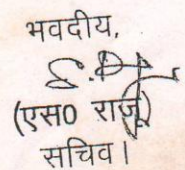 भवदीय,
(एस0 राजू)
सचिव।